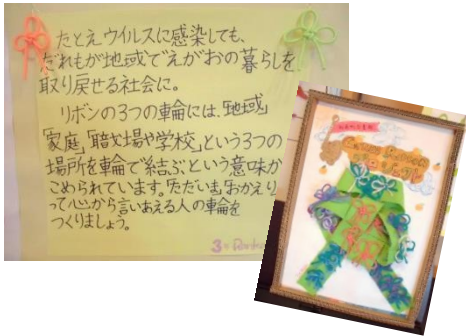 たとえウイルスに感染しても、
だれもが地域でえがおの暮らしを
取り戻せる社会に。
リボンの3つの車輪には、「地域」
「家庭」「職場や学校」という3つの
場所を輪で結ぶという意味が
こめられています。ただいま、おかえり
って心から言いあえる人の車輪を
つくりましょう。